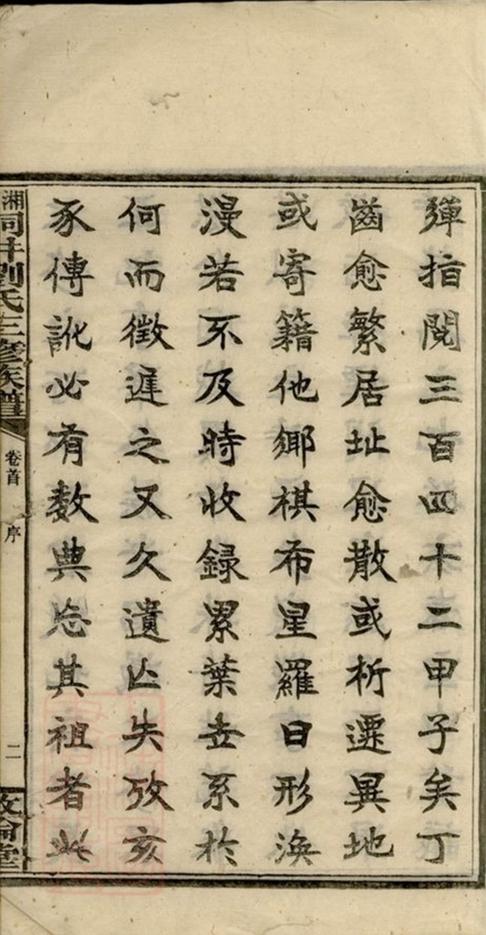 彈指閱三百四十二甲子矣丁
齒愈繁居址愈散或析遷異地
或寄籍他鄉棋布星羅日形渙
漫若不及時收録累葉世系於
何而徵遲之又久遺亡失攷亥
豕傳訛必有數典忘其祖者此
湘洞井劉氏三修族譜
卷首
序
二
敦倫堂